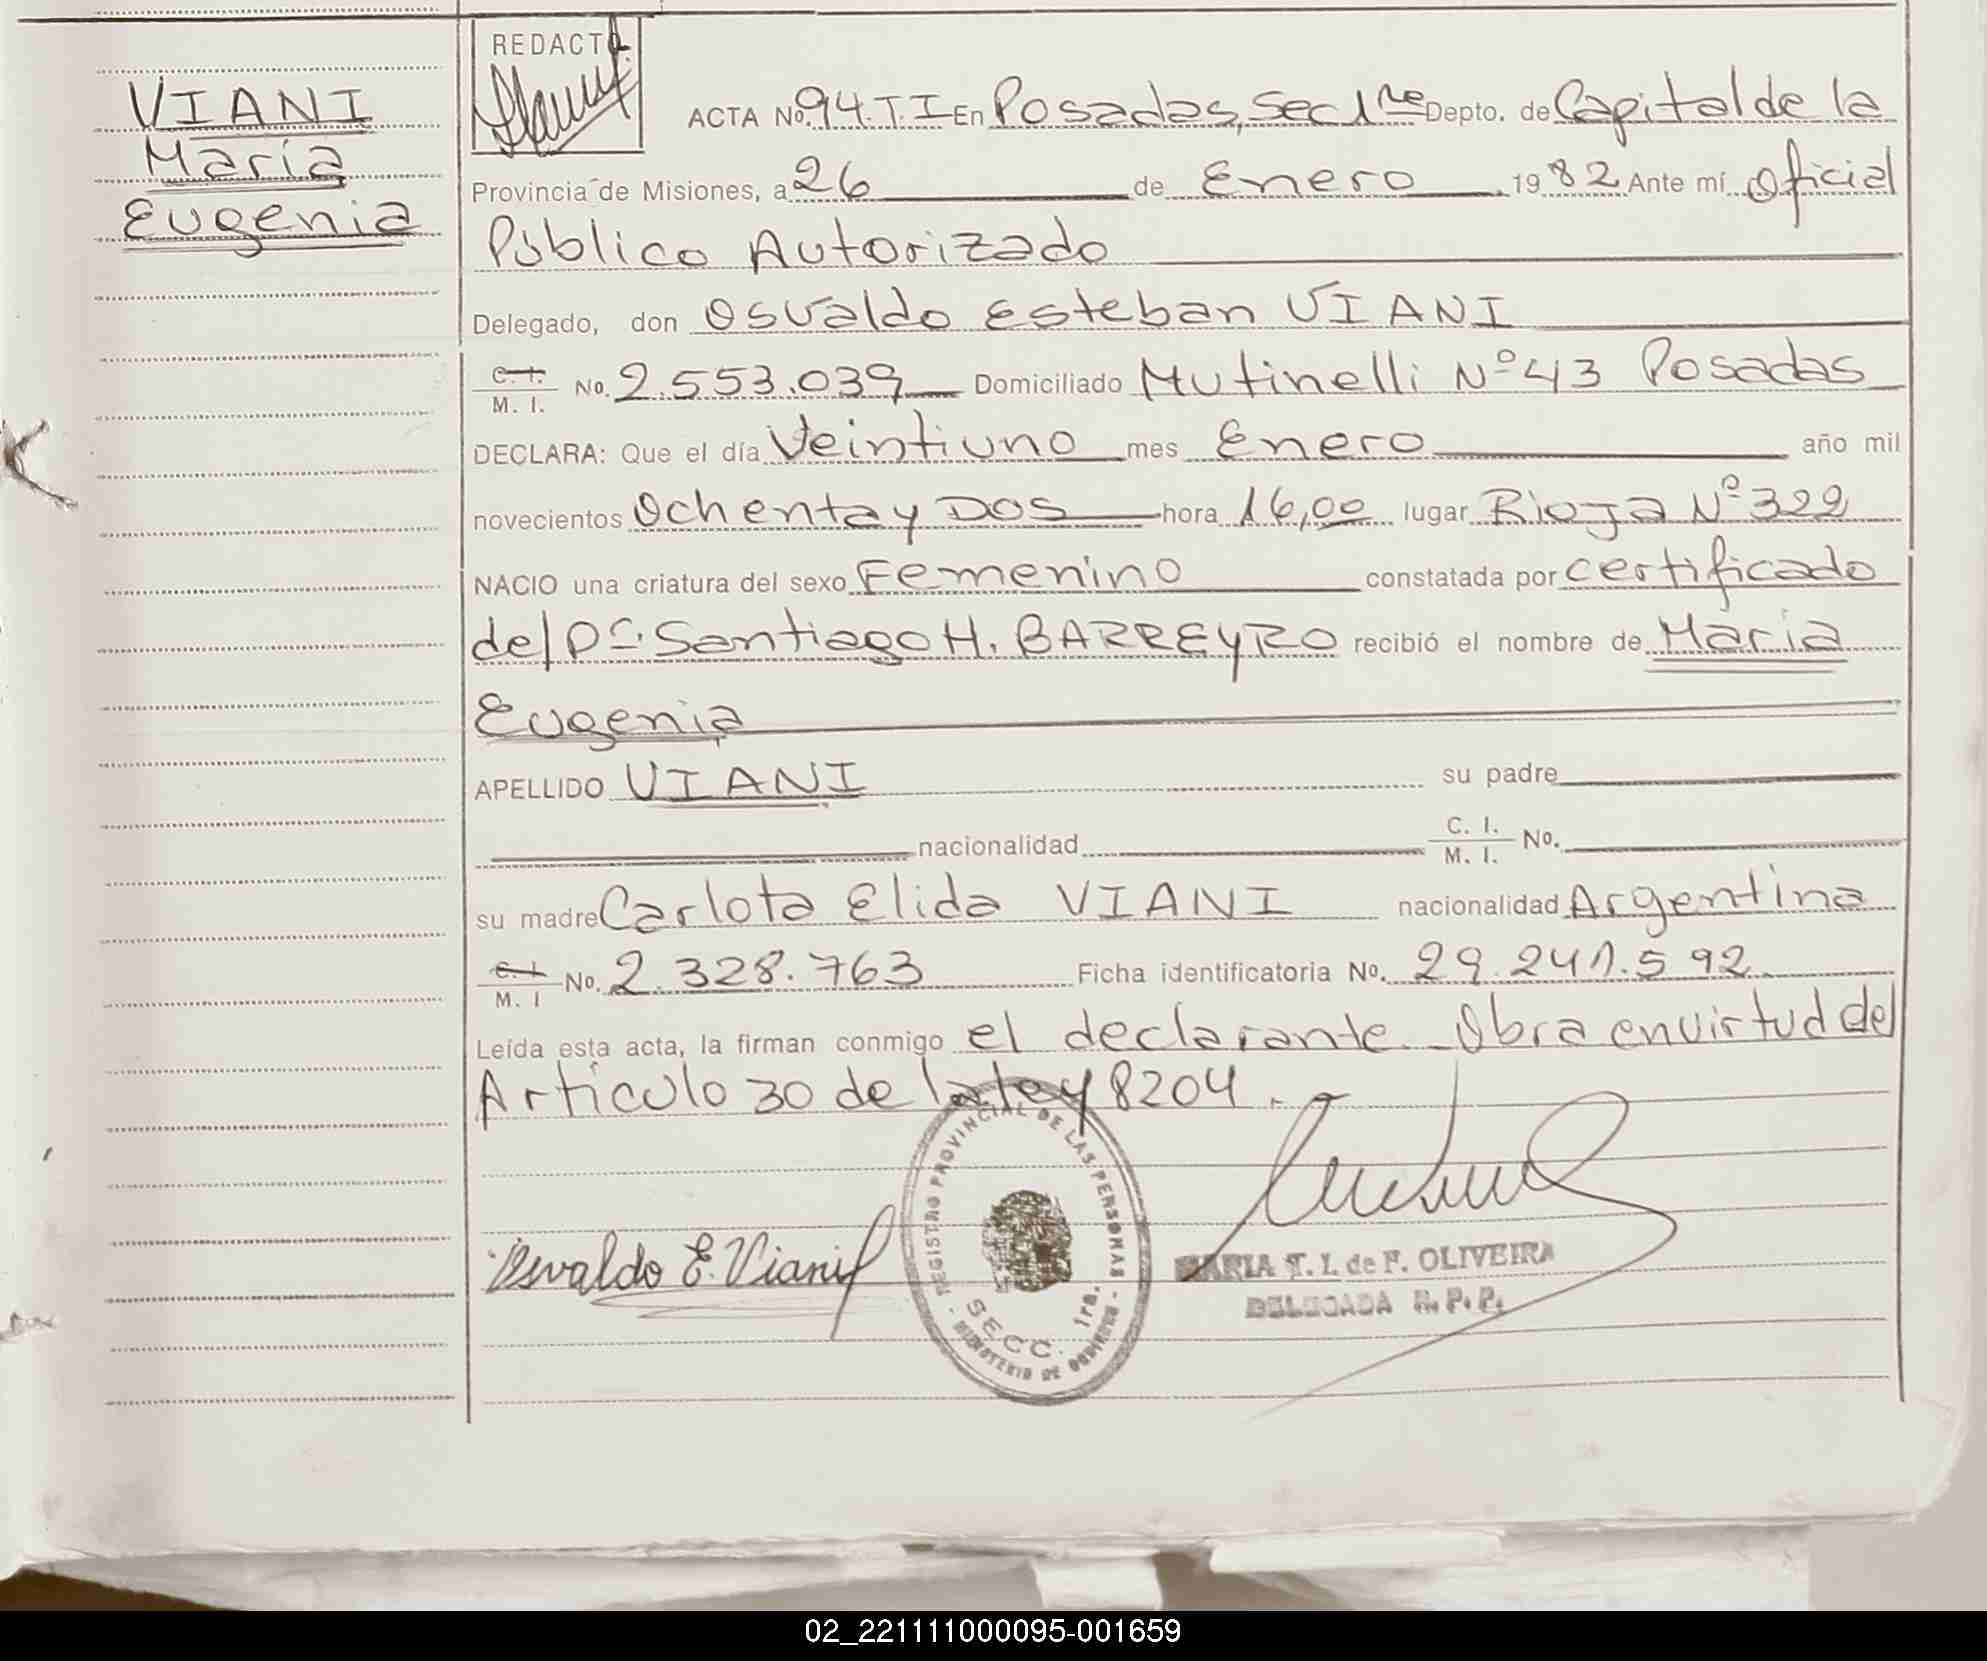 VIANI
Maria
Eugenia
REDACTO
ACTA No. 94.T.I En Posadas, Sec 1ra Depto. de Capital de la
Provincia de Misiones, a 26 de Enero 1982 Ante mí Oficial
Público Autorizado
Delegado, don Osvaldo Esteban VIANI
C. I. / M. I. No. 2.553.039 Domiciliado Mutinelli Nº 43 Posadas
DECLARA: Que el día Veintiuno mes Enero año mil
novecientos Ochenta y Dos hora 16,00 lugar Rioja Nº 322
NACIO una criatura del sexo Femenino constatada por certificado
del Dr. Santiago H. BARREYRO recibió el nombre de Maria
Eugenia
APELLIDO VIANI su padre
nacionalidad C. I. / M. I. No.
su madre Carlota Elida VIANI nacionalidad Argentina
C. I / M. I No. 2.328.763 Ficha identificatoria No. 29.241.592
Leída esta acta, la firman conmigo el declarante. Obra en virtud del
Artículo 30 de la ley 8204.
REGISTRO PROVINCIAL DE LAS PERSONAS
SECC. 1ra.
- MINISTERIO DE GOBIERNO -
Osvaldo E. Viani
MARIA T. I. de F. OLIVEIRA
DELEGADA R. P. P.
02_221111000095-001659